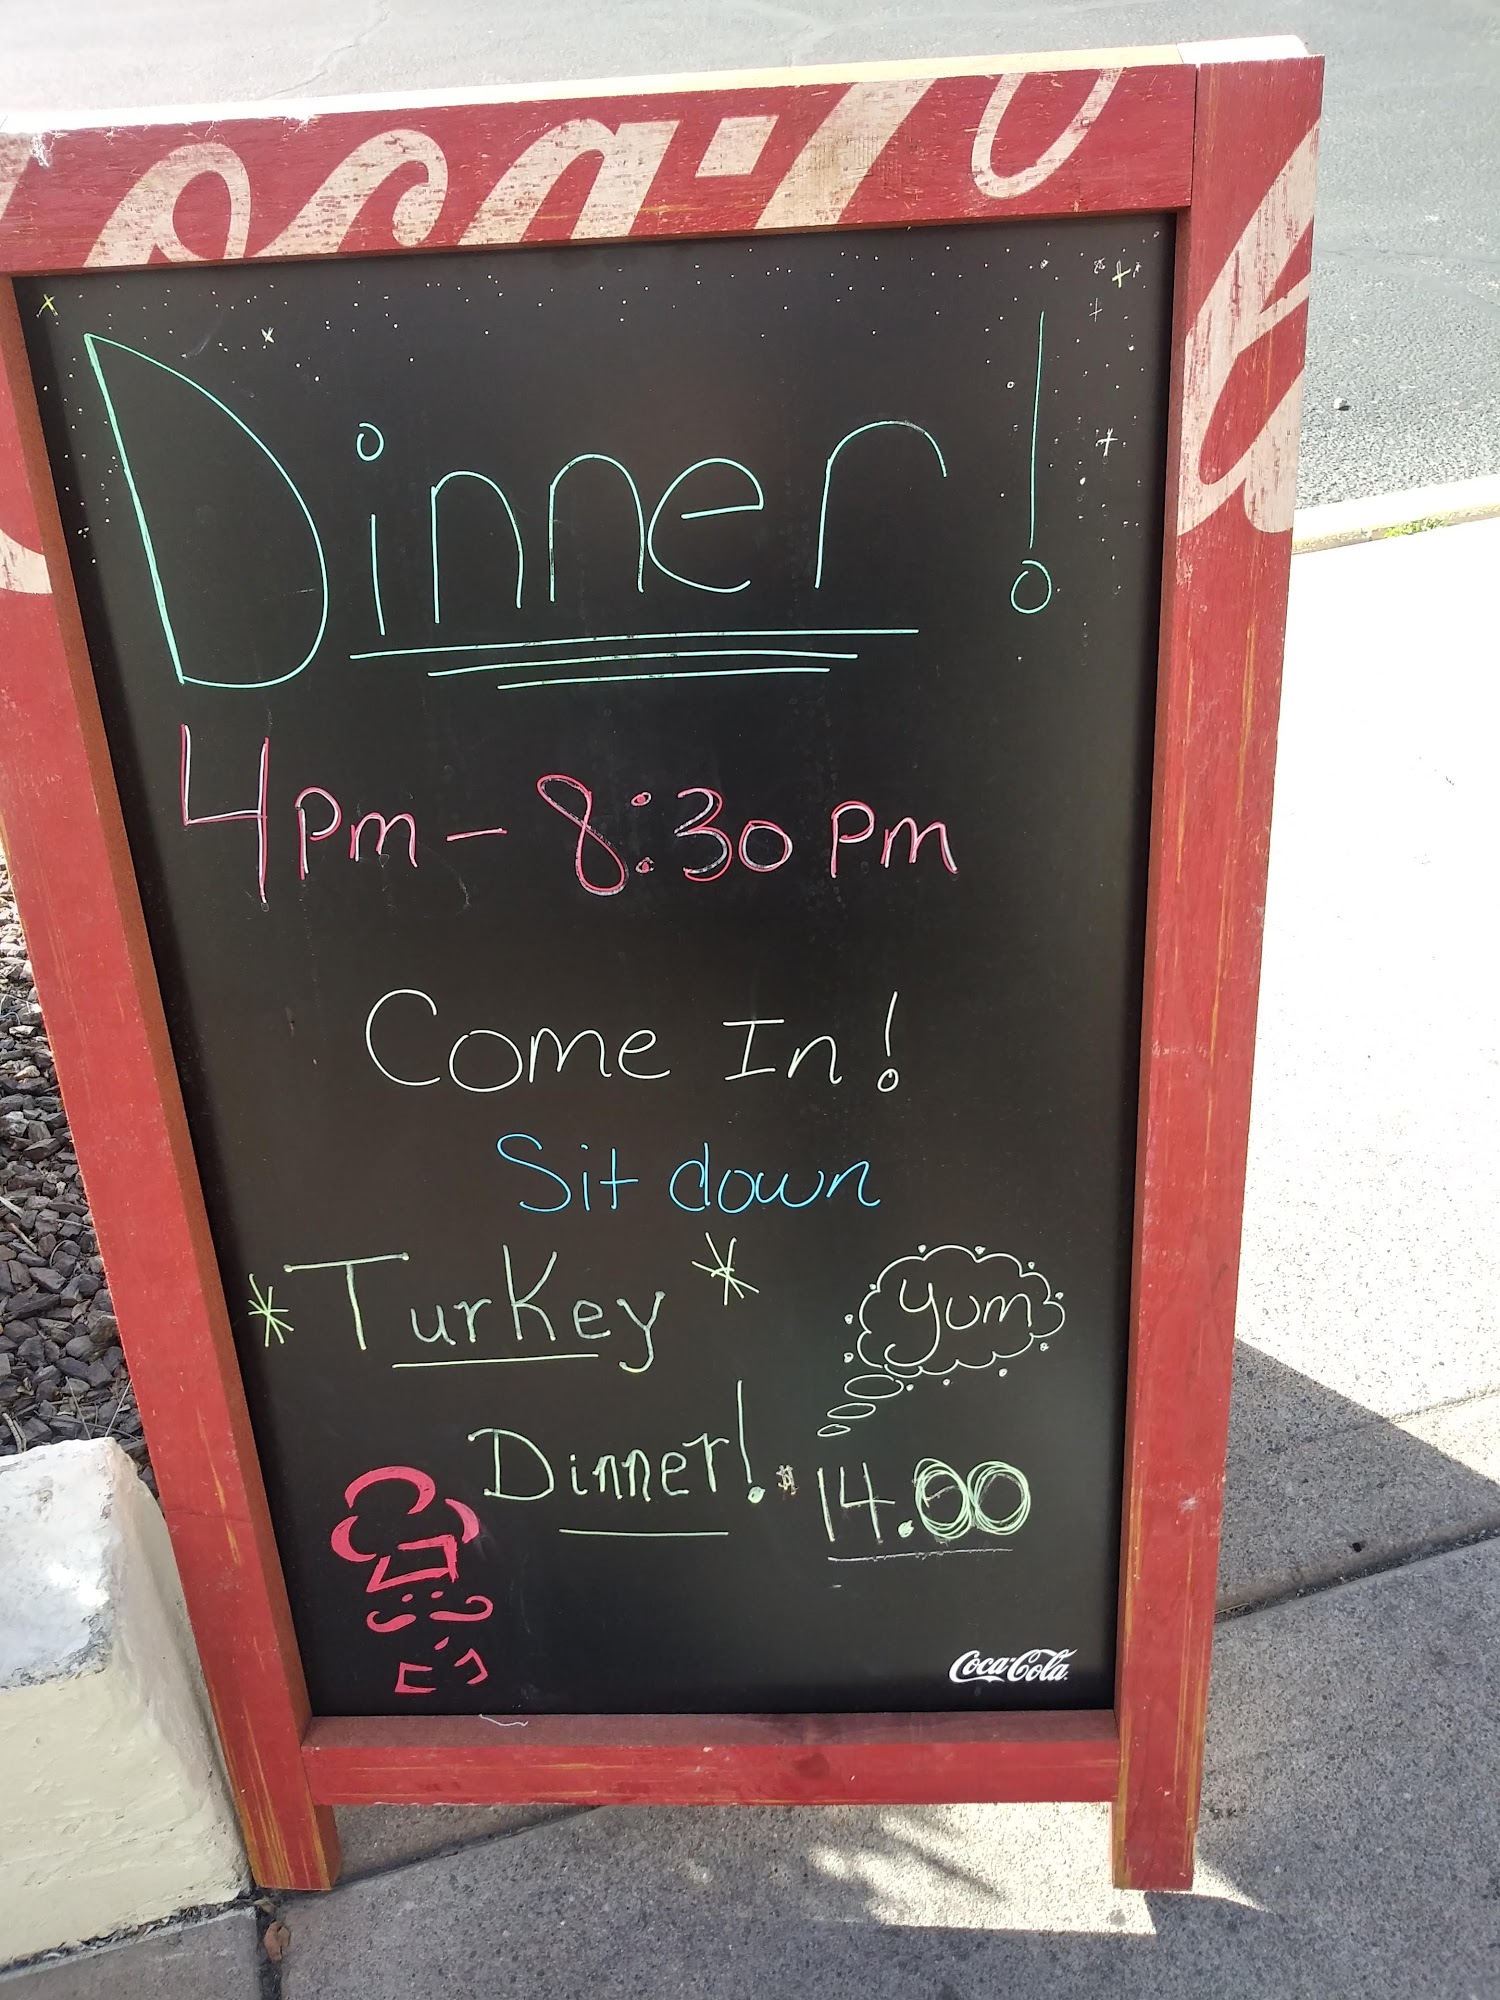 Coca-Co
Dinner!
4pm - 8:30pm
Come In!
Sit down
* Turkey *
Yum
Dinner! $14.00
Coca-Cola